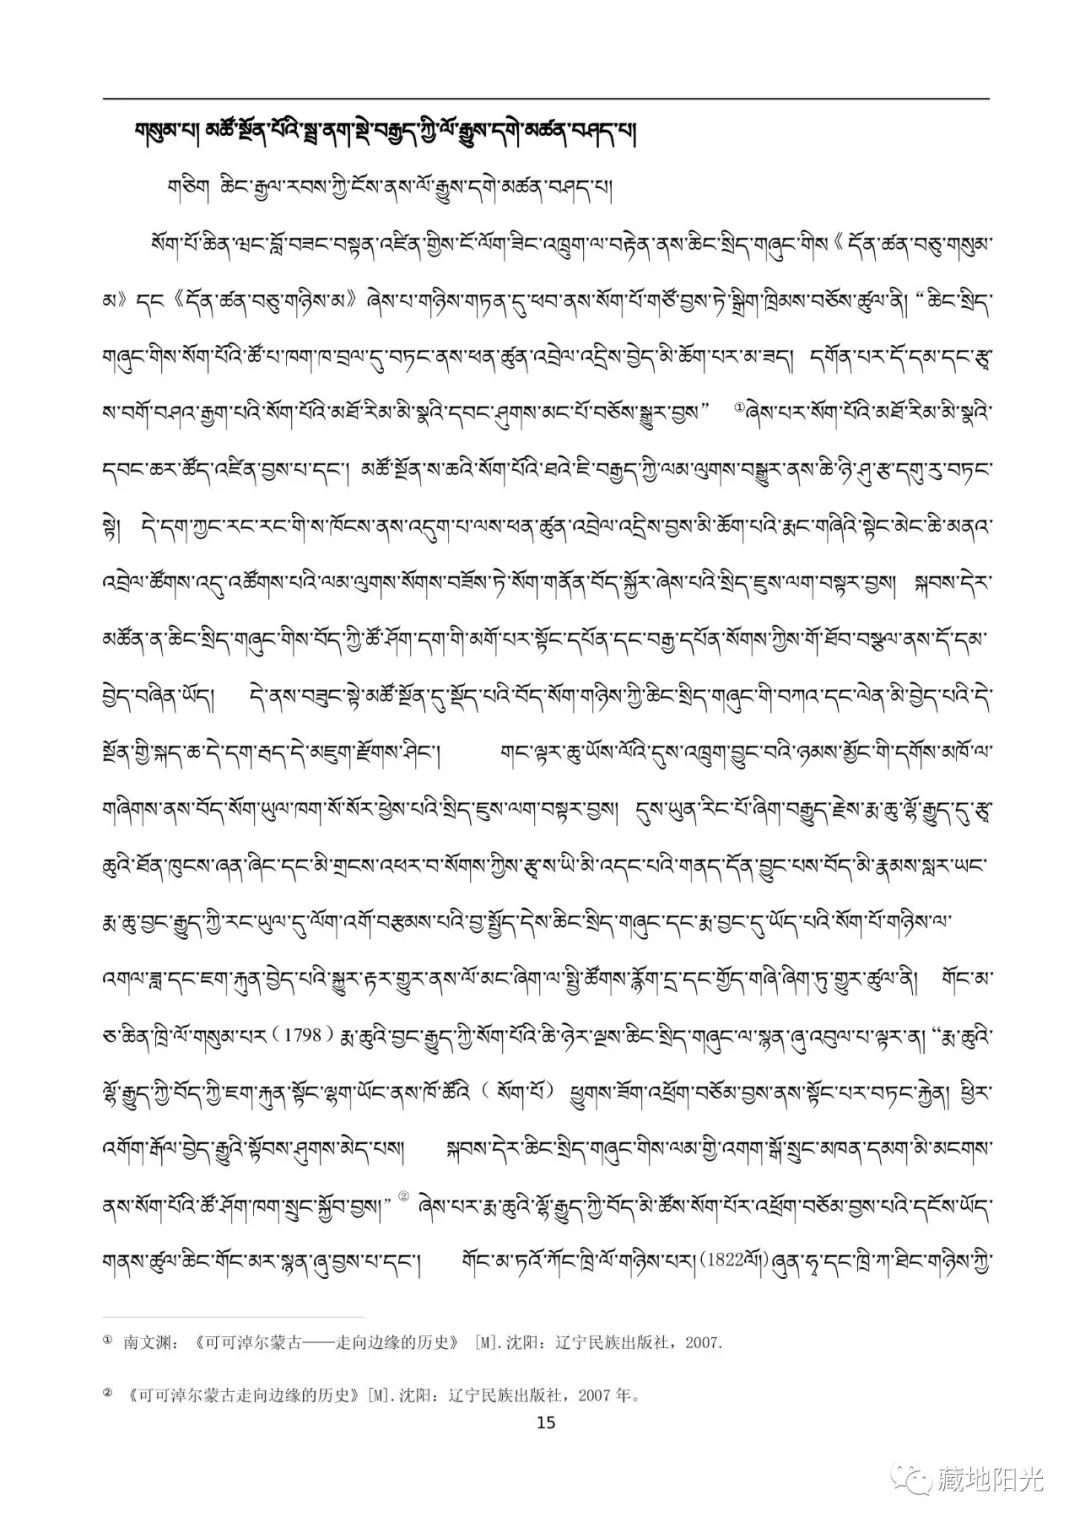 གསུམ་པ། མཚོ་སྔོན་པོའི་སྦྲ་ནག་སྡེ་བརྒྱད་ཀྱི་ལོ་རྒྱུས་དགེ་མཚན་བཤད་པ།
གཅིག ཆིང་རྒྱལ་རབས་ཀྱི་ངོས་ནས་ལོ་རྒྱུས་དགེ་མཚན་བཤད་པ།
སོག་པོ་ཆིན་ཝང་བློ་བཟང་བསྟན་འཛིན་གྱིས་ངོ་ལོག་ཟིང་འཁྲུག་ལ་བརྟེན་ནས་ཆིང་སྲིད་གཞུང་གིས《 དོན་ཚན་བཅུ་གསུམ་
མ》དང《དོན་ཚན་བཅུ་གཉིས་མ》ཞེས་པ་གཉིས་གཏན་དུ་ཕབ་ནས་སོག་པོ་གཙོ་བྱས་ཏེ་སྒྲིག་ཁྲིམས་བཅོས་ཚུལ་ནི། “ཆིང་སྲིད་
གཞུང་གིས་སོག་པོའི་ཚོ་པ་ཁག་ཁ་བྲལ་དུ་བཏང་ནས་ཕན་ཚུན་འབྲེལ་འདྲིས་བྱེད་མི་ཆོག་པར་མ་ཟད། དགོན་པར་དོ་དམ་དང་རྩྭ་
ས་བགོ་བཤའ་རྒྱག་པའི་སོག་པོའི་མཐོ་རིམ་མི་སྣའི་དབང་ཤུགས་མང་པོ་བཅོས་སྒྱུར་བྱས” ①ཞེས་པར་སོག་པོའི་མཐོ་རིམ་མི་སྣའི་
དབང་ཆར་ཚོད་འཛིན་བྱས་པ་དང་། མཚོ་སྔོན་ས་ཆའི་སོག་པོའི་ཐའེ་ཇི་བརྒྱད་ཀྱི་ལམ་ལུགས་བསྒྱུར་ནས་ཆི་ཉི་ཤུ་རྩ་དགུ་རུ་བཏང་
སྟེ། དེ་དག་ཀྱང་རང་རང་གི་ས་ཁོངས་ནས་འདུག་པ་ལས་ཕན་ཚུན་འབྲེལ་འདྲིས་བྱས་མི་ཆོག་པའི་རྨང་གཞིའི་སྟེང་མེང་ཆི་མནའ་
འབྲེལ་ཚོགས་འདུ་འཚོགས་པའི་ལམ་ལུགས་སོགས་བཟོས་ཏེ་སོག་གནོན་བོད་སྐྱོར་ཞེས་པའི་སྲིད་ཇུས་ལག་བསྟར་བྱས། སྐབས་དེར་
མཚོན་ན་ཆིང་སྲིད་གཞུང་གིས་བོད་ཀྱི་ཚོ་ཤོག་དག་གི་མགོ་པར་སྟོང་དཔོན་དང་བརྒྱ་དཔོན་སོགས་ཀྱིས་གོ་ཐོབ་བསྩལ་ནས་དོ་དམ་
བྱེད་བཞིན་ཡོད། དེ་ནས་བཟུང་སྟེ་མཚོ་སྔོན་དུ་སྡོད་པའི་བོད་སོག་གཉིས་ཀྱི་ཆིང་སྲིད་གཞུང་གི་བཀའ་དང་ལེན་མི་བྱེད་པའི་དེ་
སྔོན་གྱི་སྐད་ཆ་དེ་དག་རྦད་དེ་མཇུག་རྫོགས་ཤིང་། གང་ལྟར་ཆུ་ཡོས་ལོའི་དུས་འཁྲུག་བྱུང་བའི་ཉམས་མྱོང་གི་དགོས་མཁོ་ལ་
གཞིགས་ནས་བོད་སོག་ཡུལ་ཁག་སོ་སོར་ཕྱེས་པའི་སྲིད་ཇུས་ལག་བསྟར་བྱས། དུས་ཡུན་རིང་པོ་ཞིག་བརྒྱུད་རྗེས་རྨ་ཆུ་ལྷོ་རྒྱུད་དུ་རྩྭ་
ཆུའི་ཐོན་ཁུངས་ཞན་ཞིང་དང་མི་གྲངས་འཕར་བ་སོགས་ཀྱིས་རྩྭ་ས་ཡི་མི་འདང་པའི་གནད་དོན་བྱུང་པས་བོད་མི་རྣམས་སླར་ཡང་
རྨ་ཆུ་བྱང་རྒྱུད་ཀྱི་རང་ཡུལ་དུ་ལོག་འགོ་བརྩམས་པའི་བྱ་སྤྱོད་དེས་ཆིང་སྲིད་གཞུང་དང་རྨ་བྱང་དུ་ཡོད་པའི་སོག་པོ་གཉིས་ལ་
འགལ་ཟླ་དང་ཇག་རྐུན་བྱེད་པའི་སྐྱུར་རྟར་གྱུར་ནས་ལོ་མང་ཞིག་ལ་སྤྱི་ཚོགས་རྙོག་དྲ་དང་གྱོད་གཞི་ཞིག་ཏུ་གྱུར་ཚུལ་ནི། གོང་མ་
ཅ་ཆིན་ཁྲི་ལོ་གསུམ་པར（1798）རྨ་ཆུའི་བྱང་རྒྱུད་ཀྱི་སོག་པོའི་ཆི་ཉེར་ལྔས་ཆིང་སྲིད་གཞུང་ལ་སྙན་ཞུ་འབུལ་པ་ལྟར་ན། “རྨ་ཆུའི་
ལྷོ་རྒྱུད་ཀྱི་བོད་ཀྱི་ཇག་རྐུན་སྟོང་ལྷག་ཡོང་ནས་ཁོ་ཚོའི（ སོག་པོ） ཕྱུགས་ཟོག་འཕྲོག་བཅོམ་བྱས་ནས་སྟོང་པར་བཏང་རྐྱེན། ཕྱིར་
འགོག་རྒོལ་བྱེད་རྒྱུའི་སྟོབས་ཤུགས་མེད་པས། སྐབས་དེར་ཆིང་སྲིད་གཞུང་གིས་ལམ་གྱི་འགག་སྒོ་སྲུང་མཁན་དམག་མི་མངགས་
ནས་སོག་པོའི་ཚོ་ཤོག་ཁག་སྲུང་སྐྱོབ་བྱས།”② ཞེས་པར་རྨ་ཆུའི་ལྷོ་རྒྱུད་ཀྱི་བོད་མི་ཚོས་སོག་པོར་འཕྲོག་བཅོམ་བྱས་པའི་དངོས་ཡོད་
གནས་ཚུལ་ཆིང་གོང་མར་སྙན་ཞུ་བྱས་པ་དང་། གོང་མ་ཏའོ་ཀོང་ཁྲི་ལོ་གཉིས་པར། (1822ལོ།)ཞུན་ཧྭ་དང་ཁྲི་ཀ་ཐིང་གཉིས་ཀྱི་
① 南文渊：《可可淖尔蒙古——走向边缘的历史》 [M].沈阳：辽宁民族出版社，2007.
② 《可可淖尔蒙古走向边缘的历史》[M].沈阳：辽宁民族出版社，2007 年。
15
藏地阳光